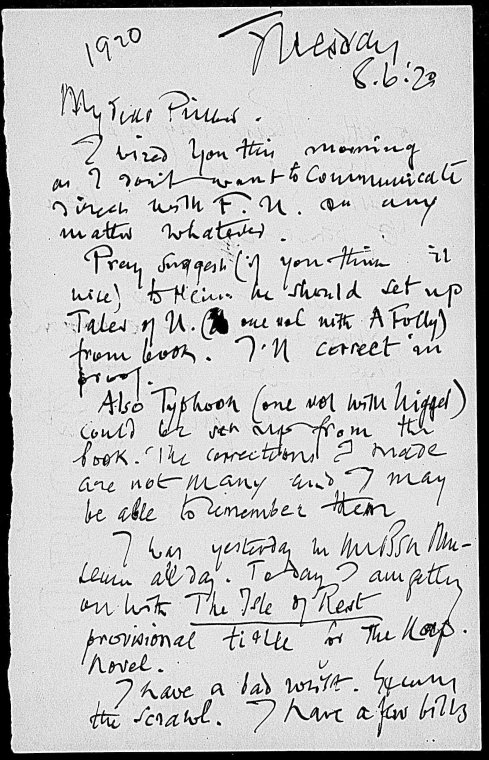 1920
Tuesday
8.6.20
My dear Pinker.
I wired you this morning
as I don't want to communicate
direct with F. N. on any
matter whatever.
Pray suggest (if you think it
nice) to Hein. he should set up
Tales of U. (one vol with A Folly)
from book. I'll correct in
proof.
Also Typhoon (one vol with Nigger)
could be set up from the
book. The corrections I made
are not many and I may
be able to remember them
I was yesterday in the Bsh Mu-
seum all day. To day I am getting
on with The Isle of Rest
provisional title for the Nap.
novel.
I have a bad wrist. Excuse
the scrawl. I have a few bills